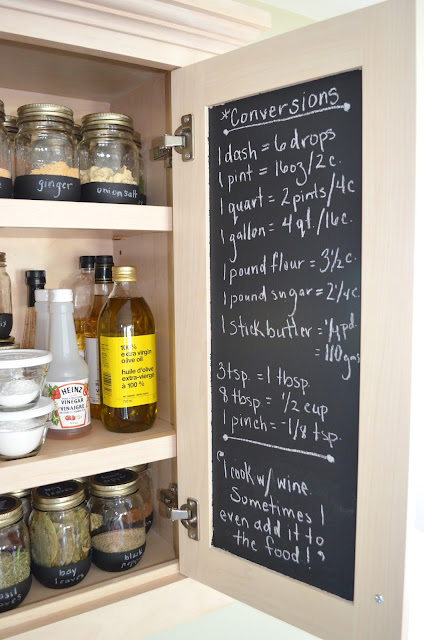 *Conversions
1 dash = 6 drops
1 pint = 16oz/2c.
1 quart = 2 pints/4c
1 gallon = 4 qt./16c.
1 pound flour = 3½c.
1 pound sugar = 2¼c.
1 stick butter = ¼ pd.
= 110 gms
3 tsp. = 1 tbsp.
8 tbsp. = ½ cup
1 pinch = 1/8 tsp.
"I cook w/ wine.
Sometimes I
even add it to
the food!"
ginger
onion salt
100%
extra virgin
olive oil
huile d'olive
extra-vierge
à 100 %
HEINZ
VINEGAR
VINAIGRE
bay
leaves
black